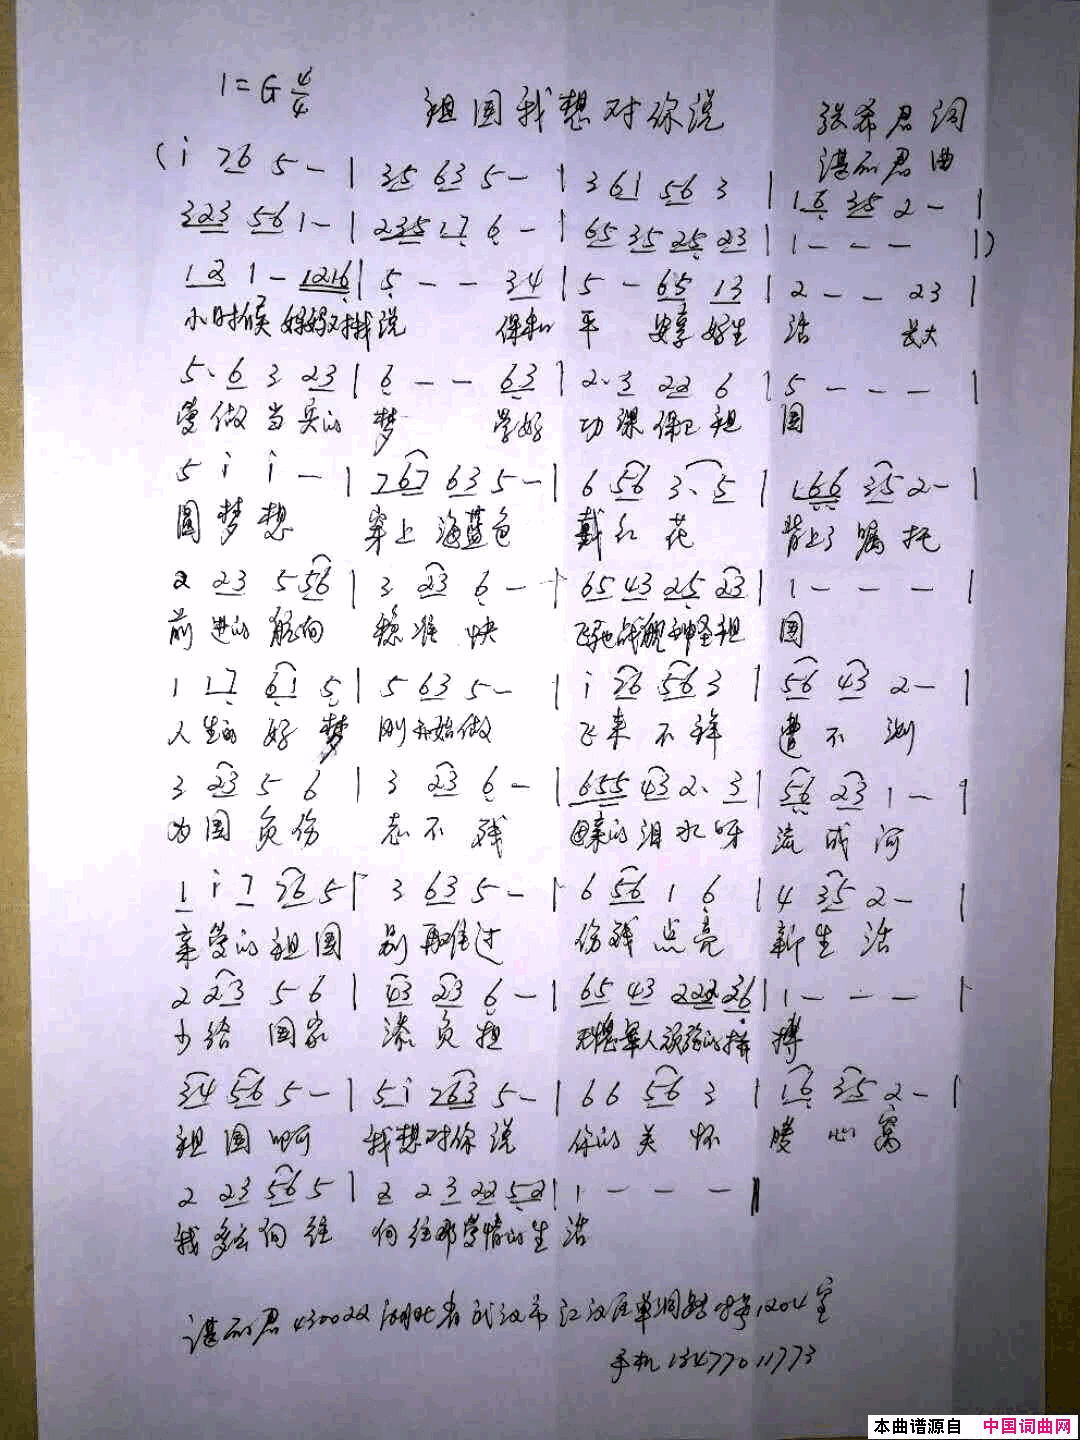 1=G 4/4
祖国我想对你说
张希君 词
谌丽君 曲
(i 26 5 - | 35 63 5 - | 3 61 56 3 | 16 35 2 - |
323 561 - | 235 17 6 - | 65 35 25 23 | 1 - - - |)
12 1 - 1216 | 5 - - 34 | 5 - 65 13 | 2 - - 23 |
小时候 妈妈对我说 保和 平 安享好生 活 长大
5· 6 3 23 | 6 - - 63 | 2·3 22 6 | 5 - - - |
要做当实的 梦 学好 功课保卫祖 国
5 i i - | 767 63 5 - | 6 56 3· 5 | 166 35 2 - |
圆梦想 穿上海蓝色 戴红花 背上了嘱托
2 23 5 56 | 3 23 6 - - | 65 43 25 23 | 1 - - - |
前进的航向 稳准快 飞驰战舰神圣祖 国
1 17 61 5 | 5 63 5 - | i 76 56 3 | 56 43 2 - |
人生的好梦 刚开始做 飞来不祥 遭不测
3 23 5 6 | 3 23 6 - | 655 43 2· 3 | 56 23 1 - |
为国负伤 志不残 母亲的泪水呀 流成河
1 i 7 76 5 | 3 63 5 - | 6 56 1 6 | 4 35 2 - |
亲爱的祖国 别再难过 伤残点亮 新生活
2 23 5 6 | 43 23 6 - | 65 43 222 36 | 1 - - - |
少给国家 添负担 残军人顽强的拼 搏
34 56 5 - | 5i 763 5 - | 66 56 3 | 16 35 2 - |
祖国啊 我想对你说 你的关怀 暖心窝
2 23 56 5 | 2 23 22 52 | 1 - - - ‖
我多么向往 向往那 的生 活
谌丽君 430022 湖北省武汉市江汉区单洞 1204室
手机 13477011773
本曲谱源自 中国词曲网